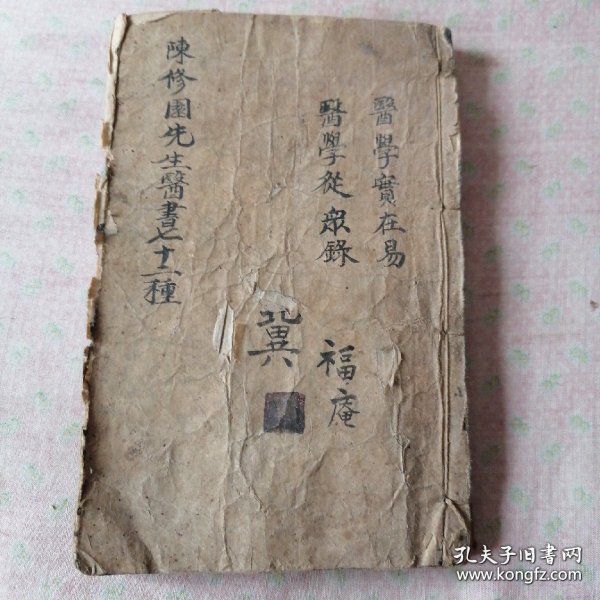 醫學實在易
醫學從衆錄
陳修園先生醫書七十二種
福庵
冀
孔夫子旧書网
www.kongfz.com